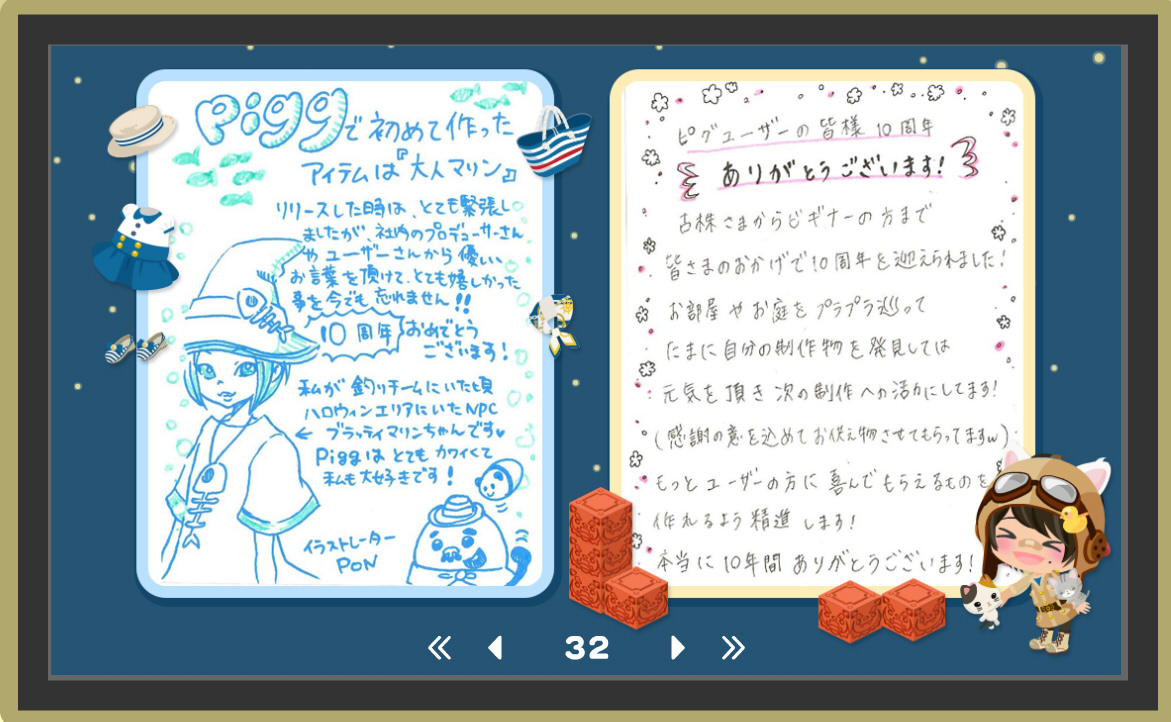 Piggで初めて作った
アイテムは『大人マリン』
リリースした時は、とても緊張し
ましたが、社内のプロデューサーさん
やユーザーさんから優しい
お言葉を頂けて、とても嬉しかった
事を今でも忘れません!!
10周年おめでとう
ございます!
私が釣りチームにいた頃
ハロウィンエリアにいたNPC
← ブラッディマリンちゃんです♥
Piggはとてもカワイくて
私も大好きです!
イラストレーター
PON
ピグユーザーの皆様10周年
ありがとうございます!
古株さまからビギナーの方まで
皆さまのおかげで10周年を迎えられました!
お部屋やお庭をプラプラ巡って
たまに自分の制作物を発見しては
元気を頂き次の制作への活力にしてます!
(感謝の意を込めてお供え物させてもらってますw)
もっとユーザーの方に喜んでもらえるものを
作れるよう精進します!
本当に10年間ありがとうございます!
32